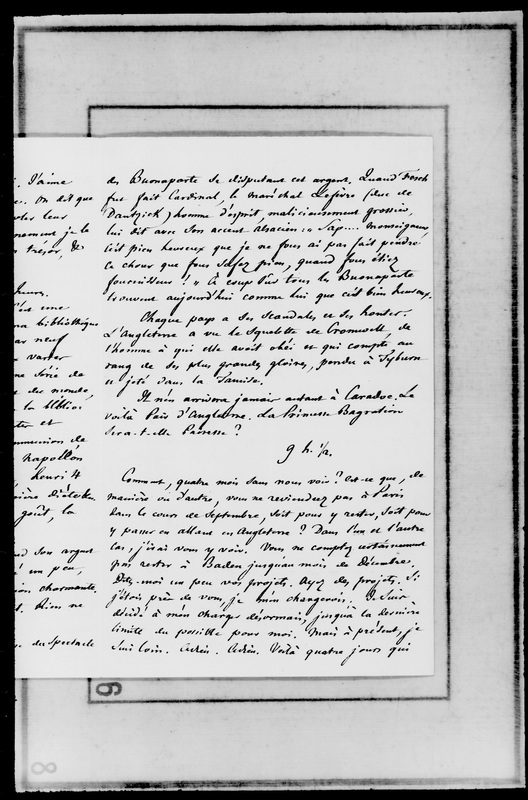 . J'aime
. On dit que
leur
nement je le
trésor, &
une
bibliothèque
neuf
varier
Série de
du monde,
la biblio
et
de
Napoléon
henri 4
goût, la
son argent
un peu,
charmante.
Rien ne
du Spectacle
des Buonaparte se disputant cet argent. Quand Fesch
fut fait Cardinal, le maréchal Lefèvre (duc de
Dantzick) homme d'esprit, malicieusement grossier,
lui dit avec son accent alsacien: "Sap.... monseigneur,
c'est pien heureux que je ne fous ai pas fait pendre
ce chour que fous safez pien, quand fous étiez
fournisseur!" À coup sûr tous les Buonaparte
trouvent aujourd'hui comme lui que c'est bien heureux.
Chaque pays a ses scandales et ses hontes.
L'Angleterre a vu le squelette de Cromwell, de
l'homme à qui elle avoit obéi et qui compte au
rang de ses plus grandes gloires, pendu à Tyburn
et jeté dans la Tamise.
Il n'en arrivera jamais autant à Caradoc. Le
voilà Pair d'Angleterre. La Princesse Bagration
sera-t-elle Pairesse?
9 h. 1/2.
Comment, quatre mois sans nous voir? Est-ce que, de
manière ou d'autre, vous ne reviendrez pas à Paris
dans le cours de Septembre, soit pour y rester, soit pour
y passer en allant en Angleterre? Dans l'un et l'autre
cas, j'irais vous y voir. Vous ne comptez certainement
pas rester à Baden jusqu'au mois de Décembre.
Dites-moi un peu vos projets. Ayez des projets. Si
j'étois près de vous, je m'en chargerois. Je suis
décidé à m'en charger désormais, jusqu'à la dernière
limite du possible pour moi. Mais à présent, je
suis loin. Adieu. Adieu. Voilà quatre jours qui
9
8